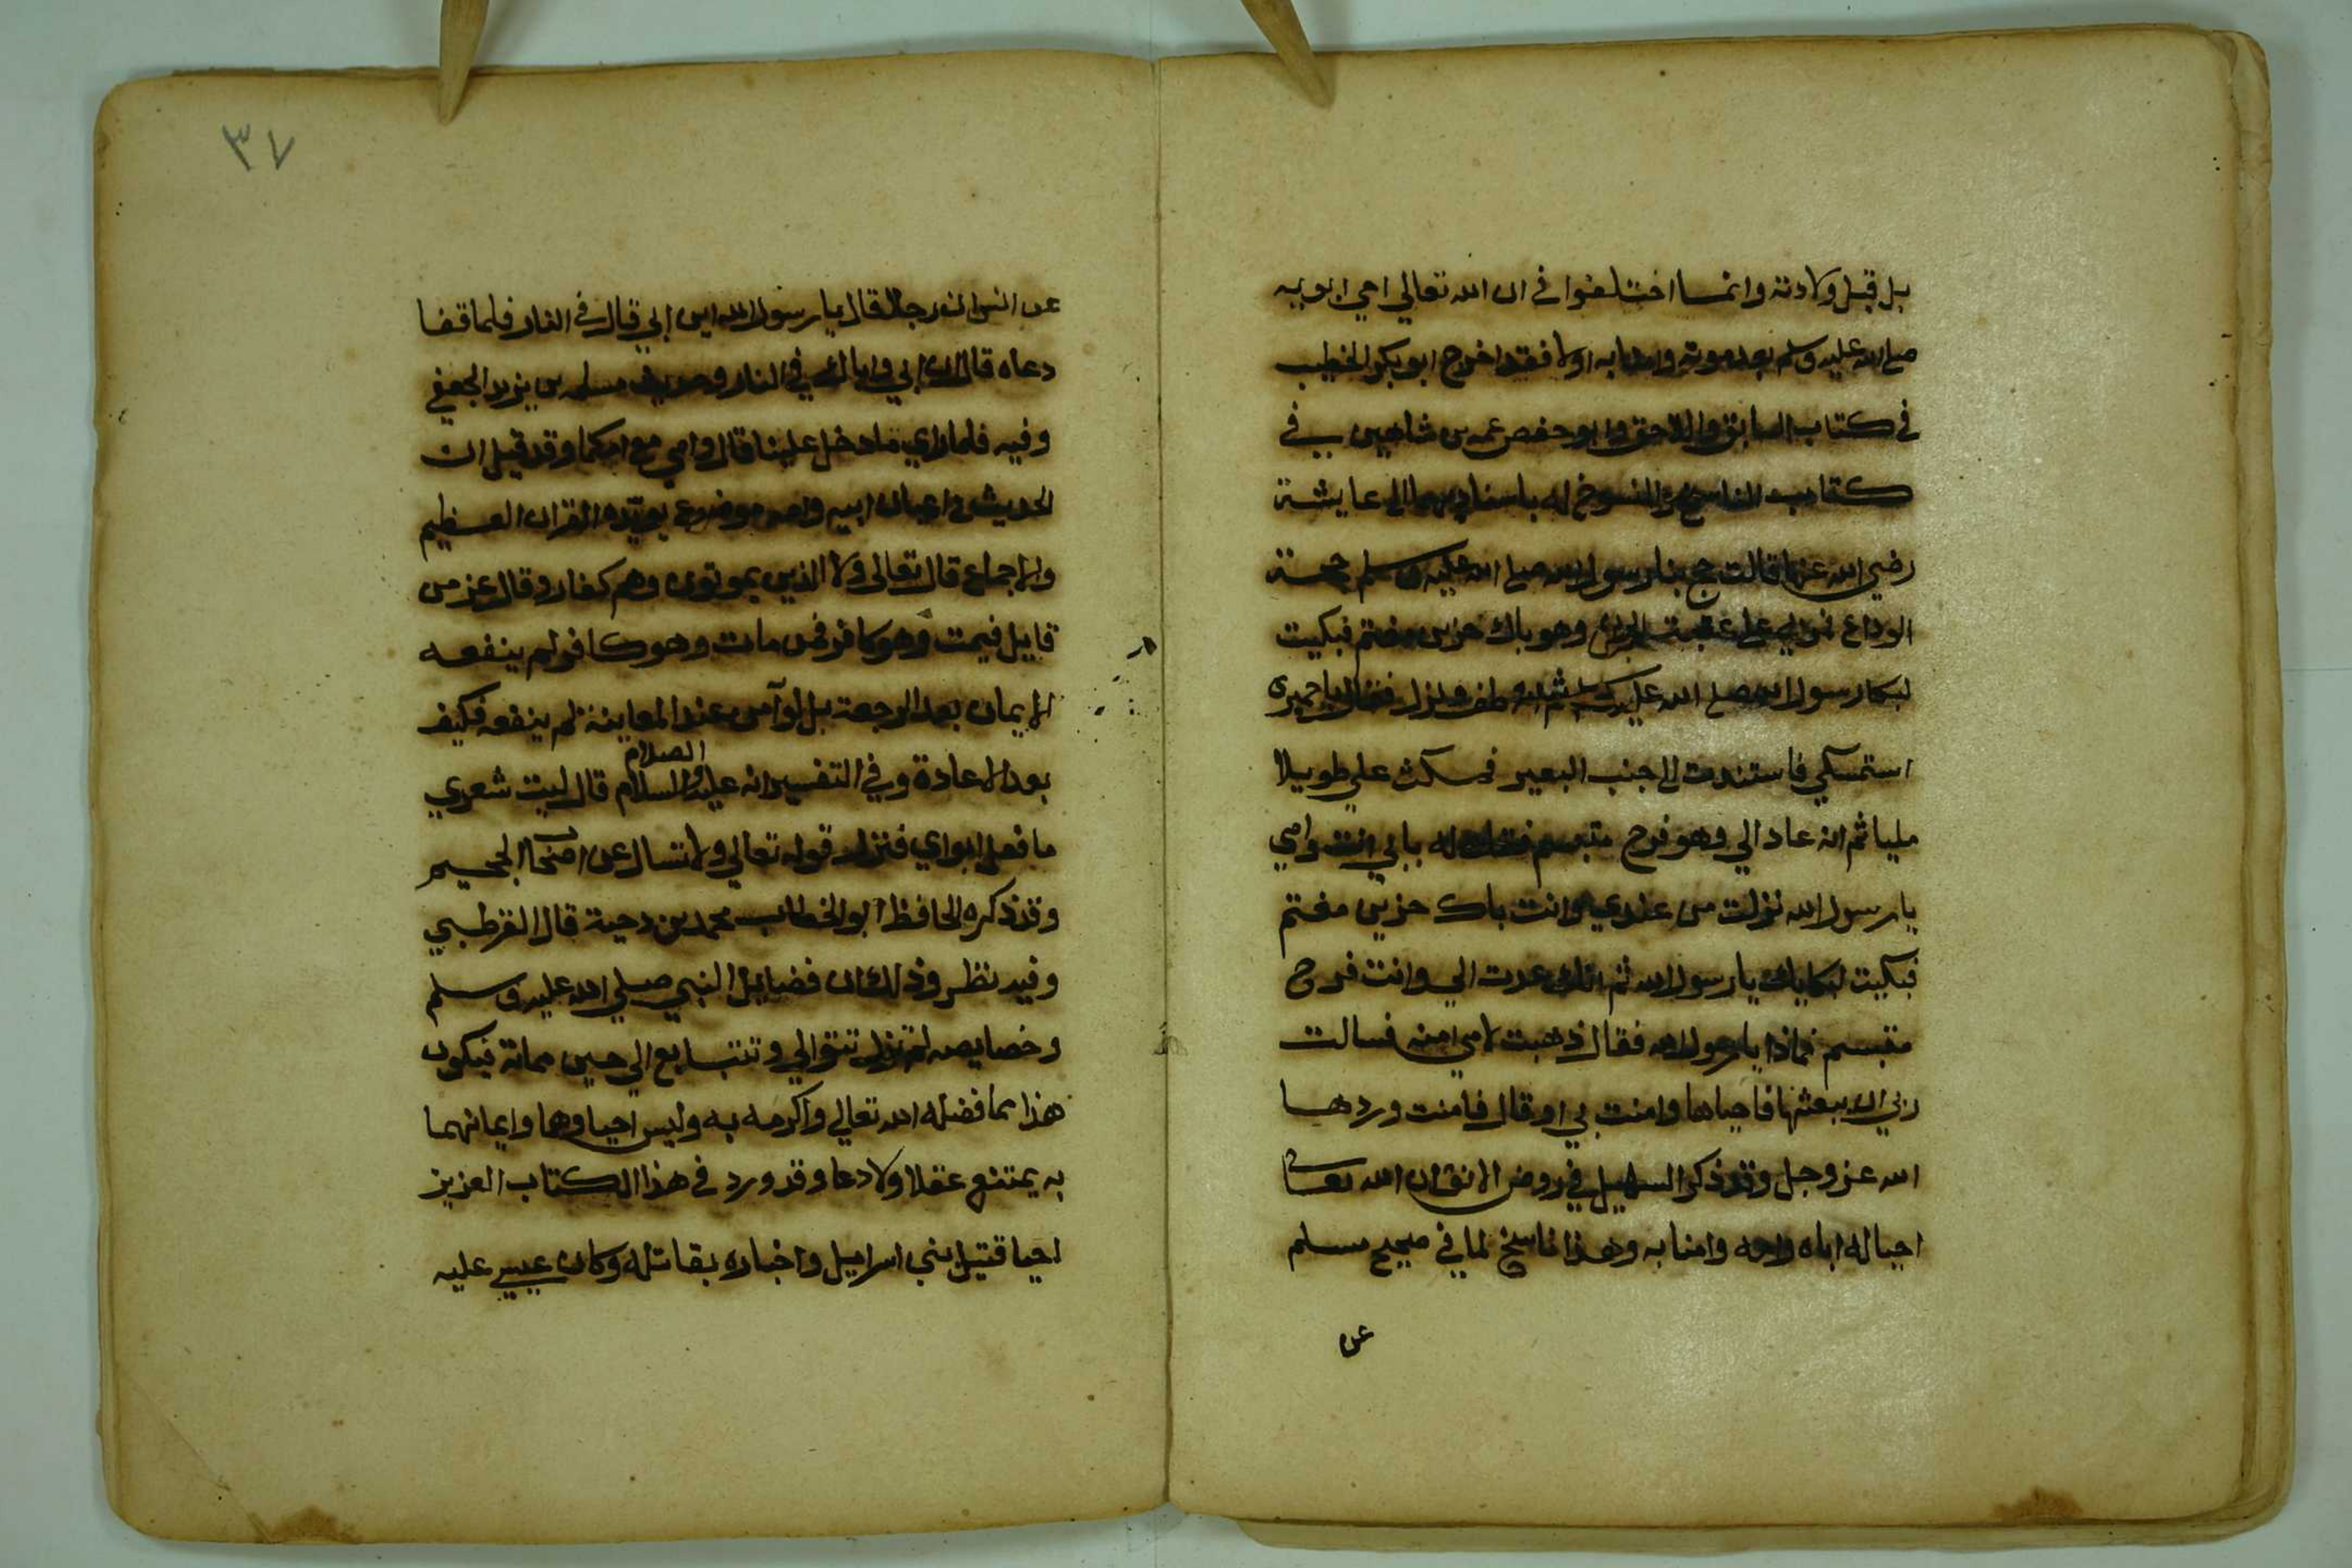 بل قبل ولادته وانما اختلفوا في ان الله تعالي احي ابويه
صلي الله عليه وسلم بعد موته وامنا به اولا فقد اخرج ابو بكر الخطيب
في كتاب السابق واللاحق وابو حفص عمر بن شاهين في
كتاب الناسخ والمنسوخ له باسناديهما الي عايشة
رضي الله عنها قالت حج بنا رسول الله صلي الله عليه وسلم حجة
الوداع فمر بي علي عقبة وهو باك حزين مغتم فبكيت
لبكا رسول الله صلي الله عليه وسلم ثم انه ونزل فقال يا حميرى
استمسكي فاستندت الي جنب البعير فمكث علي طويلا
مليا ثم انه عاد الي وهو فرح متبسم فقلت له بابي انت وامي
يا رسول الله نزلت من عندي وانت باك حزين مغتم
فبكيت لبكايك يا رسول الله ثم انك عدت الي وانت فرح
متبسم فماذا يا رسول الله فقال ذهبت لامي امنه فسالت
ربي ان يبعثها فاحياها وامنت بي او قال فامنت وردها
الله عز وجل وقد ذكر السهيلي في روض الانف ان الله تعا
احيا له اباه وامه وامنا به وهذا ناسخ لما في صحيح مسلم
عن
٣٧
عن انس ان رجلا قال يا رسول الله اين ابي قال في النار فلما قفا
دعاه قال ان ابي واباك في النار وحديث مسلمه بن يزيد الجعفي
وفيه فلما راي ما دخل علينا قال وامي مع امكما وقد قيل ان
الحديث في ايمان ابيه وامه موضوع يرده القران العظيم
والاجماع قال تعالى ولا الذين يموتون وهم كفار وقال عز من
قايل فيمت وهو كافر فمن مات وهو كافر لم ينفعه
الايمان بعد الرجعة بل لو آمن عند المعاينة لم ينفعه فكيف
بعد الاعادة وفي التفسير انه عليه الصلام والسلام قال ليت شعري
ما فعل ابواي فنزل قوله تعالي ولا تسال عن اصحاب الجحيم
وقد ذكره الحافظ ابو الخطاب محمد بن دحية قال القرطبي
وفيه نظر وذلك ان فضايل النبي صلي الله عليه وسلم
وخصايصه لم تزل تتوالي وتتتابع الي حين مماته فيكون
هذا مما فضله الله تعالي واكرمه به وليس احياوهما وايمانهما
به يمتنع عقلا ولا دعا وقد ورد في هذا الكتاب العزيز
احيا قتيل بني اسراميل واخباره بقاتله وكان عيسي عليه